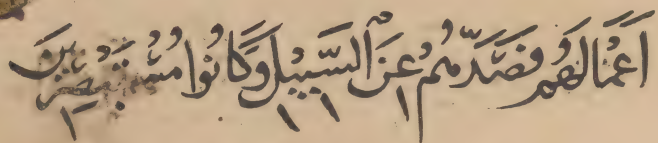 اَعْمَالَهُمْ فَصَدَّهُمْ عَنِ السَّبِيْلِ وَكَانُوْا مُسْتَبْصِرِيْنَ